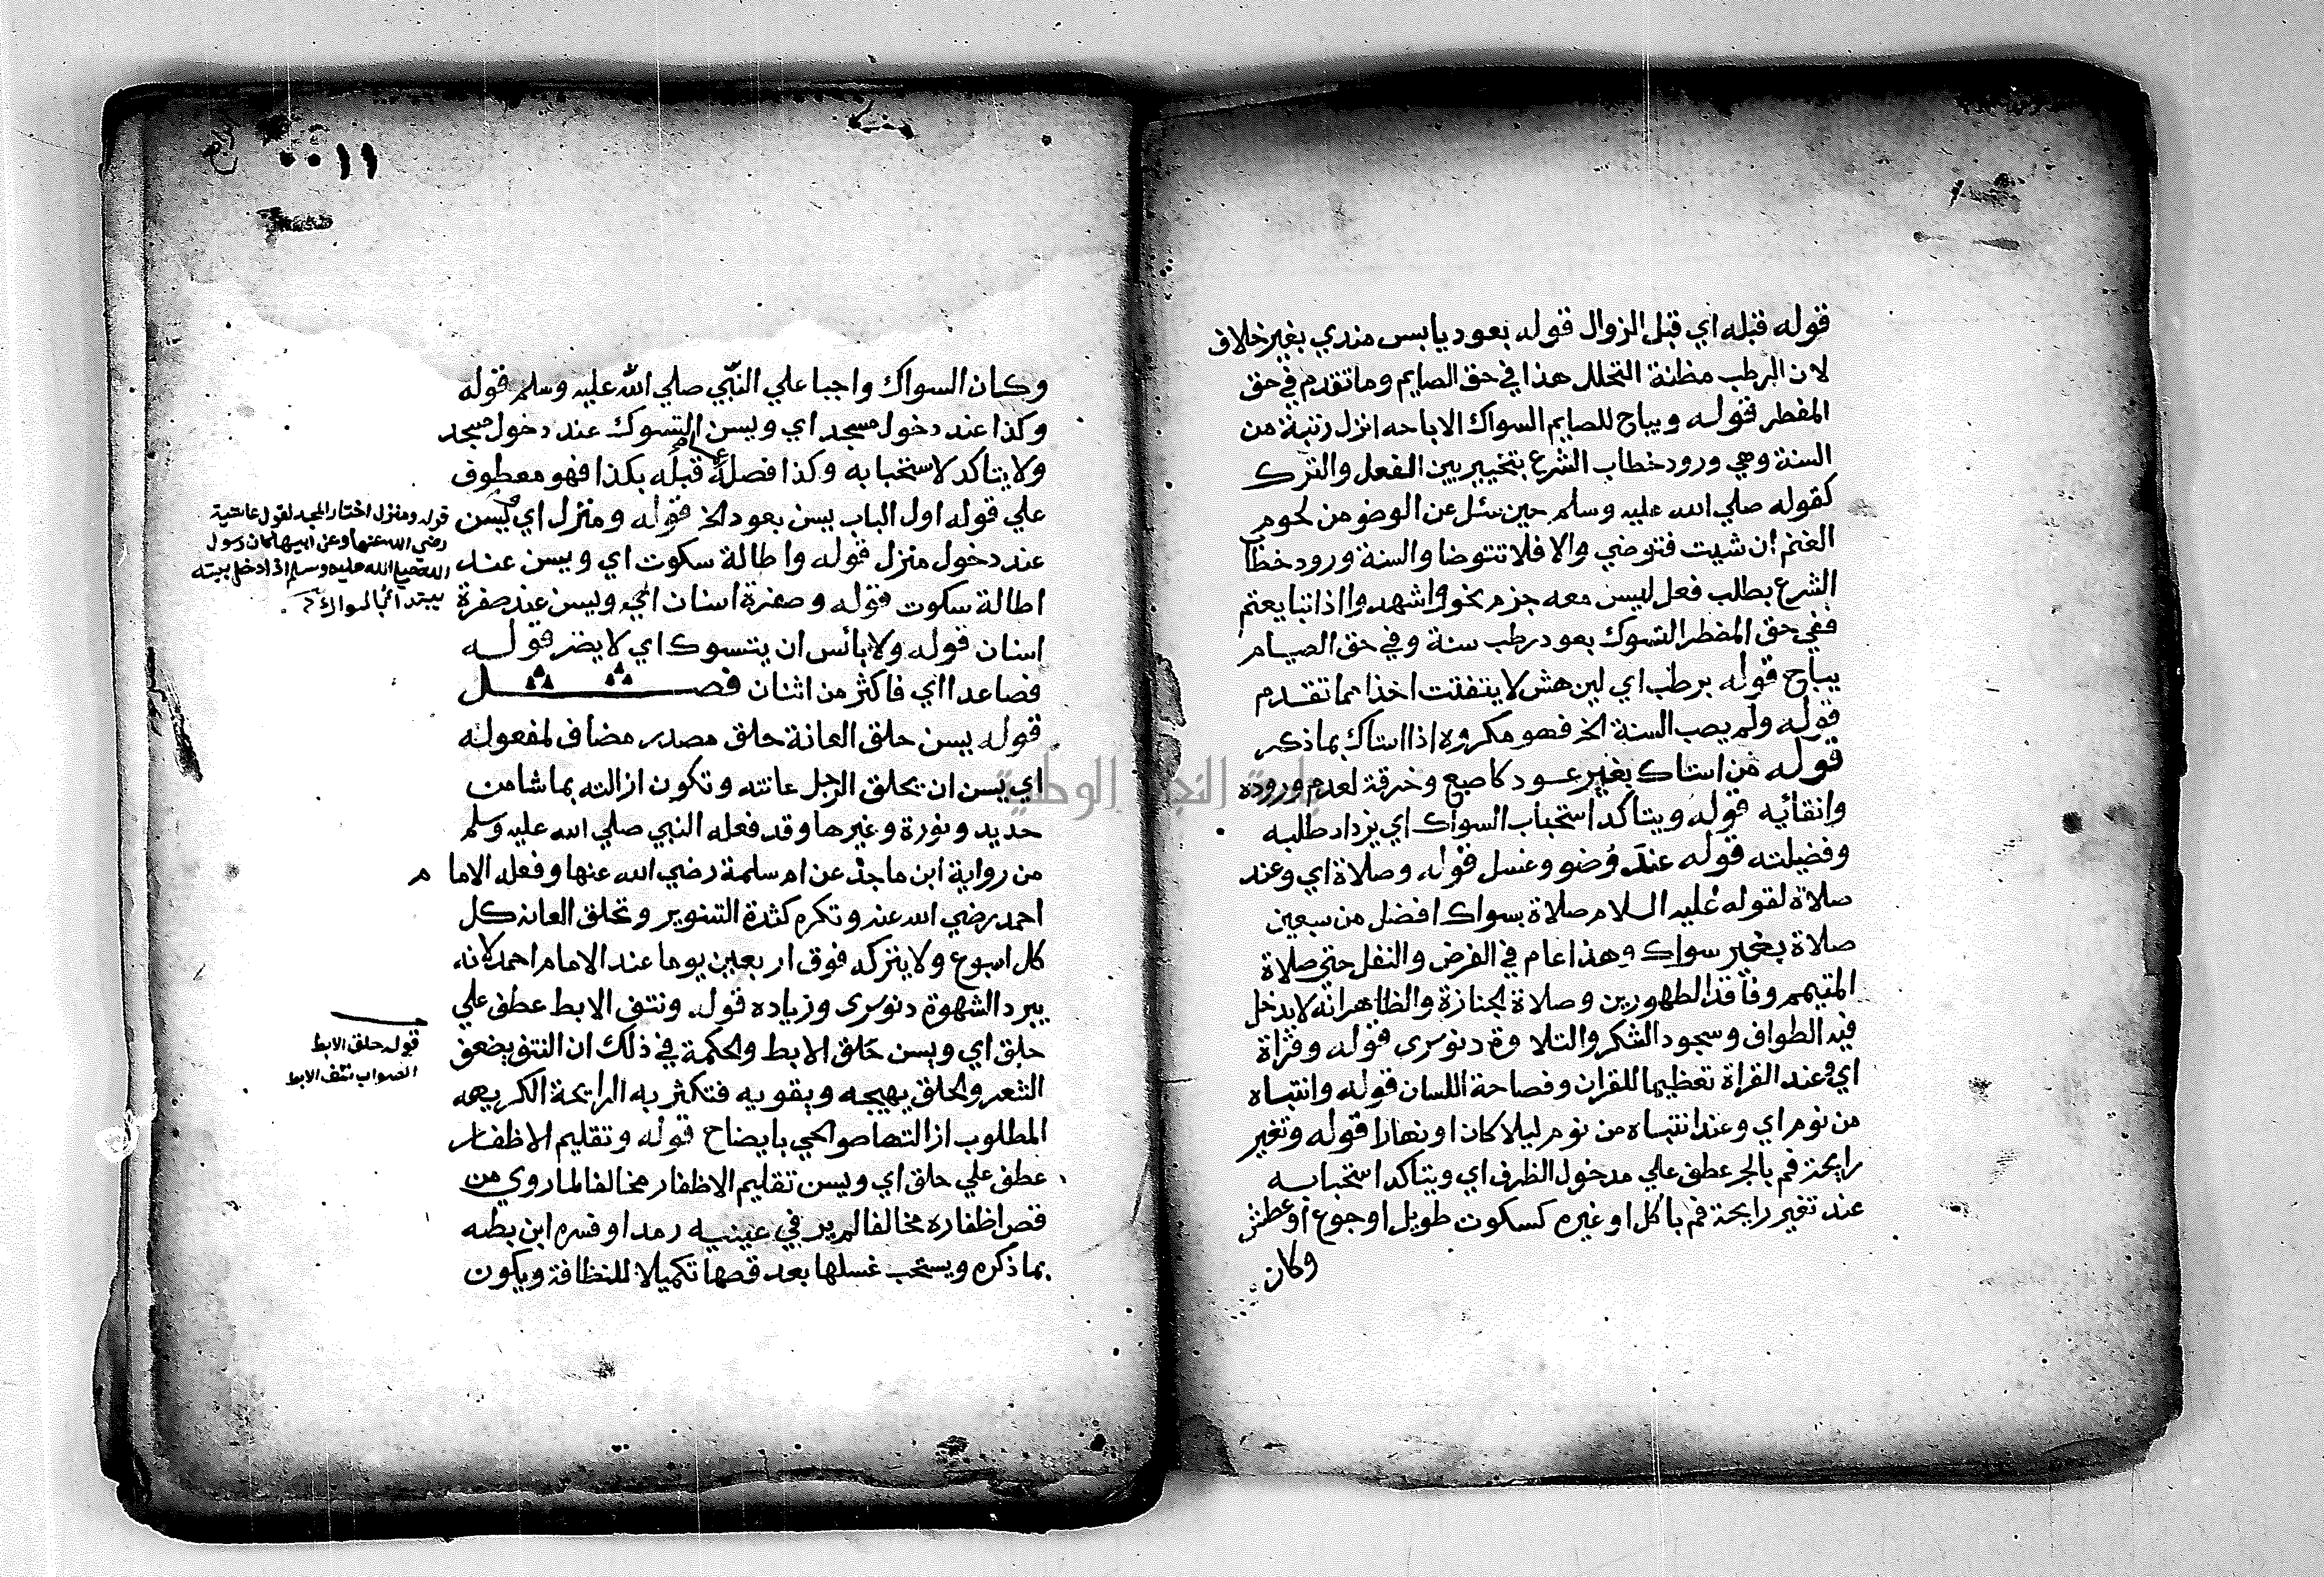 قوله قبله اي قبل الزوال قوله بعود يابس مندي بغير خلاف
لان الرطب مظنة التحلل هذا في حق الصايم وما تقدم في حق
المفطر قوله ويباح للصايم السواك الاباحه انزل رتبة من
السنة وهي ورود خطاب الشرع بتخيير بين الفعل والترك
كقوله صلي الله عليه وسلم حين سئل عن الوضو من لحوم
الغنم ان شيت فتوضي والا فلا تتوضا والسنة ورود خطا
الشرع بطلب فعل ليس معه جزم نحو واشهدوا اذا تبايعتم
ففي حق المفطر التسوك بعود رطب سنة وفي حق الصيام
يباح قوله برطب اي لين هش لا يتفتت اخذا مما تقدم
قوله ولم يصب السنة الخ فهو مكروه اذا استاك بما ذكر
قوله من استاك بغير عود كاصبع وخرقة لعدم وروده
وانقائيه قوله ويتاكد استحباب السواك اي يزداد طلبه
وفضيلته قوله عند وضو وغسل قوله وصلاة اي وعند
صلاة لقوله عليه السلام صلاة بسواك افضل من سبعين
صلاة بغير سواك وهذا عام في الفرض والنفل حتي صلاة
المتيمم وفاقد الطهورين وصلاة الجنازة والظاهر انه لا يدخل
فيه الطواف وسجود الشكر والتلاوة دنوسرى قوله وقراة
اي وعند القراة تعظيما للقران وفصاحة اللسان قوله وانتباه
من نوم اي وعند انتباه من نوم ليلا كان او نهارا قوله وتغير
رايحة فم بالجر عطف علي مدخول الظرف اي ويتاكد استحبابه
عند تغير رايحة فم باكل او غيره كسكوت طويل او جوع او عطش
وكان
١١
وكان السواك واجبا علي النبي صلي الله عليه وسلم قوله
وكذا عند دخول مسجد اي ويسن التسوك عند دخول مسجد
ولا يتاكد لاستحبابه وكذا فصله عما قبله بكذا فهو معطوف
علي قوله اول الباب يسن بعود الخ قوله ومنزل اي يسن
عند دخول منزل قوله واطالة سكوت اي ويسن عند
اطالة سكوت قوله وصفرة اسنان اي ويسن عند صفرة
اسنان قوله ولا باس ان يتسوك اي لا يضر قوله
فصاعدا اي فاكثر من اثنان فصل
قوله يسن حلق العانة حلق مصدر مضاف لمفعوله
اي يسن ان يحلق الرجل عانته وتكون ازالته بما شا من
حديد ونورة وغيرها وقد فعله النبي صلي الله عليه وسلم
من رواية ابن ماجة عن ام سلمة رضي الله عنها وفعله الاما م
احمد رضي الله عنه وتكره كثرة التنوير وتحلق العانه كل
كل اسبوع ولا يتركه فوق اربعين يوما عند الامام احمد لانه
يبرد الشهوة دنوسرى وزياده قوله ونتف الابط عطف علي
حلق اي ويسن حلق الابط والحكمة في ذلك ان النتف يضعف
الشعر والحلق يهيجه ويقويه فتكثر به الرايحة الكريهه
المطلوب ازالتها صوالحي بايضاح قوله وتقليم الاظفار
عطف علي حلق اي ويسن تقليم الاظفار مخالفا لما روي من
قص اظفاره مخالفا لم ير في عينيه رمدا وفسره ابن بطه
بما ذكره ويستحب غسلها بعد قصها تكميلا للنظافة ويكون
قوله ومنزل اختار المجد لقول عائشة
رضي الله عنها وعن ابيها كان رسول
الله صلي الله عليه وسلم اذا دخل بيته
يبتدا بالسواك
قوله حلق الابط
الصواب نتف الابط